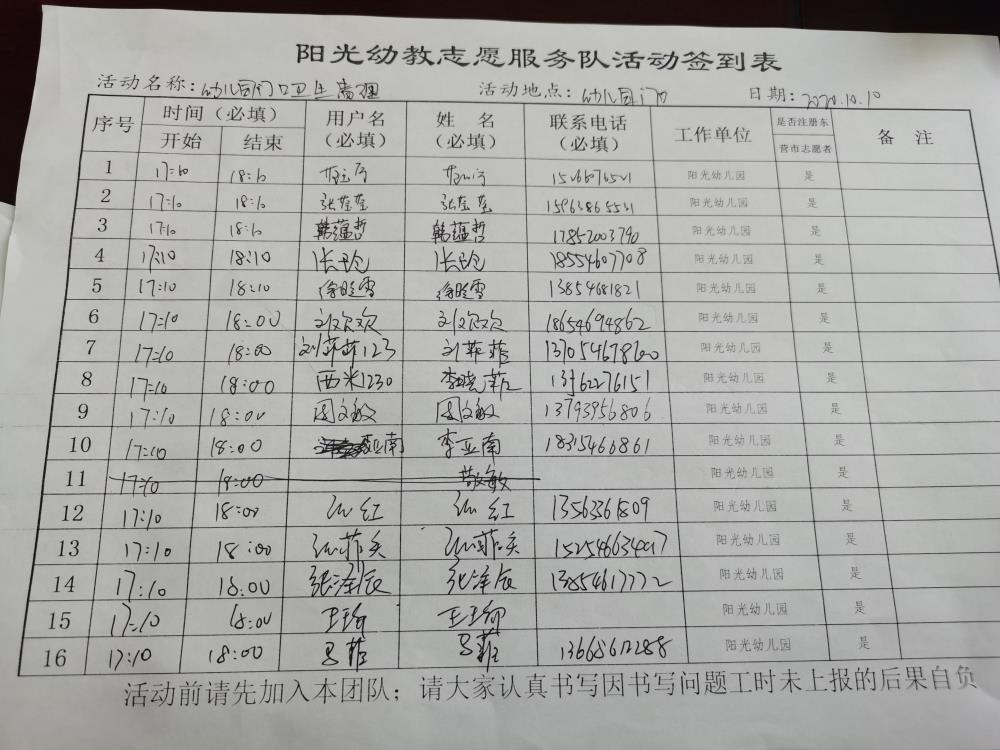 阳光幼教志愿服务队活动签到表
活动名称：幼儿园门口卫生清理 活动地点：幼儿园门口 日期：2020.10.10
序号 时间（必填） 用户名（必填） 姓 名（必填） 联系电话（必填） 工作单位 是否注册东营市志愿者 备 注
开始 结束
1 17:10 18:10 阳光幼儿园 是
2 17:10 18:10 阳光幼儿园 是
3 17:10 18:10 韩蕴哲 韩蕴哲 17852003790 阳光幼儿园 是
4 17:10 18:10 18554607708 阳光幼儿园 是
5 17:10 18:10 徐晓雪 徐晓雪 13854681821 阳光幼儿园 是
6 17:10 18:00 刘欢欢 刘欢欢 18654694862 阳光幼儿园 是
7 17:10 18:00 刘菲菲123 刘菲菲 阳光幼儿园 是
8 17:10 18:00 西米1230 李晓菲 阳光幼儿园 是
9 17:10 18:00 周文敏 周文敏 13793956806 阳光幼儿园 是
10 17:10 18:00 李亚南 李亚南 18315466861 阳光幼儿园 是
11 17:10 18:00 敬敏 阳光幼儿园 是
12 17:10 18:00 孙红 孙红 13563361809 阳光幼儿园 是
13 17:10 18:00 阳光幼儿园 是
14 17:10 18:00 张泽辰 张泽辰 13854617772 阳光幼儿园 是
15 17:10 18:00 阳光幼儿园 是
16 17:10 18:00 吕菲 吕菲 阳光幼儿园 是
活动前请先加入本团队；请大家认真书写因书写问题工时未上报的后果自负